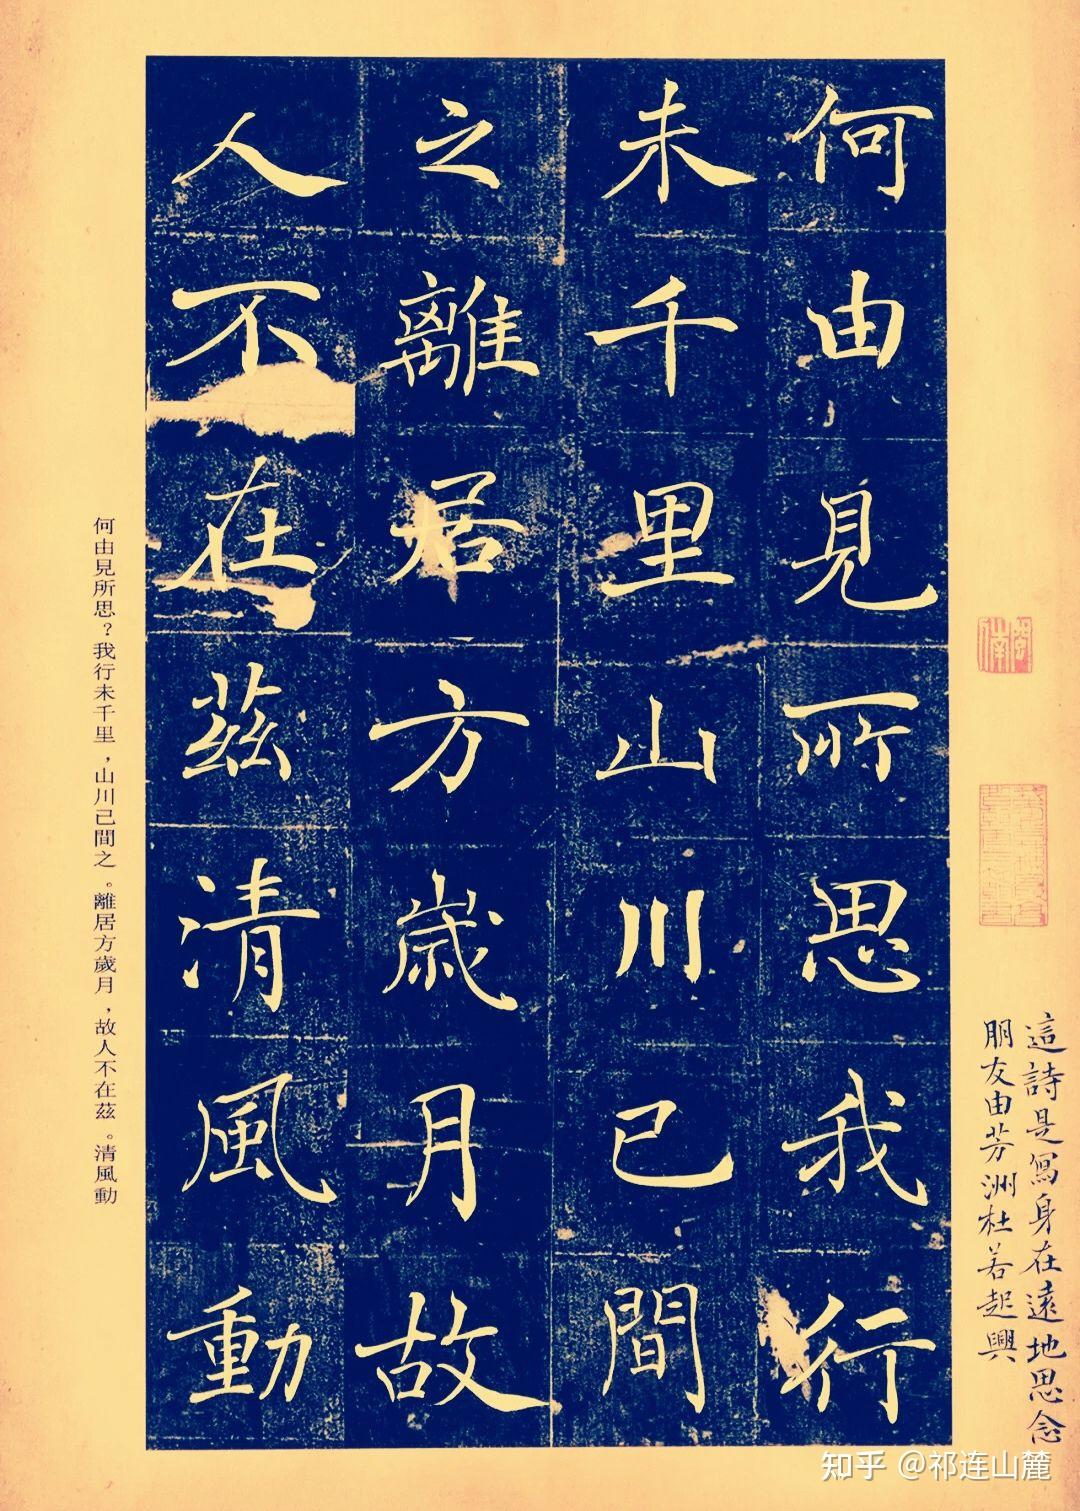 這詩是寫身在遠地思念
朋友由芳洲杜若起興
何由見所思我行
未千里山川已間
之離居方歲月故
人不在茲清風動
何由見所思？我行未千里，山川己間之。離居方歲月，故人不在茲。清風動
知乎 @祁连山麓